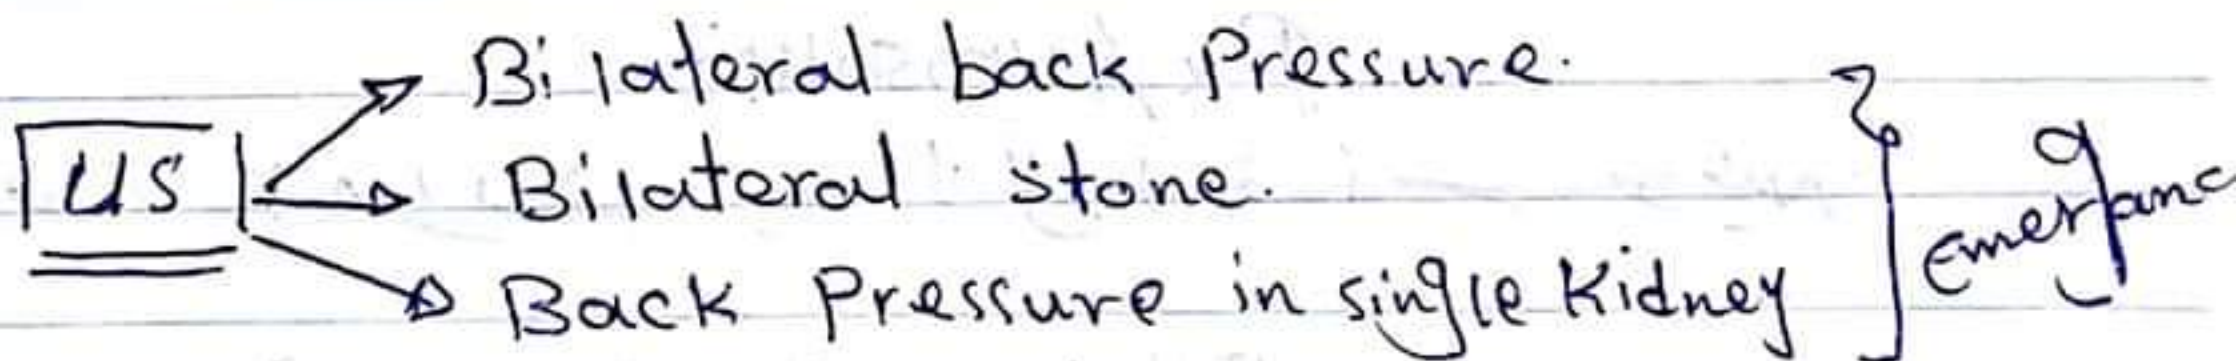 Bilateral back Pressure.
US Bilateral stone.
Back Pressure in single Kidney